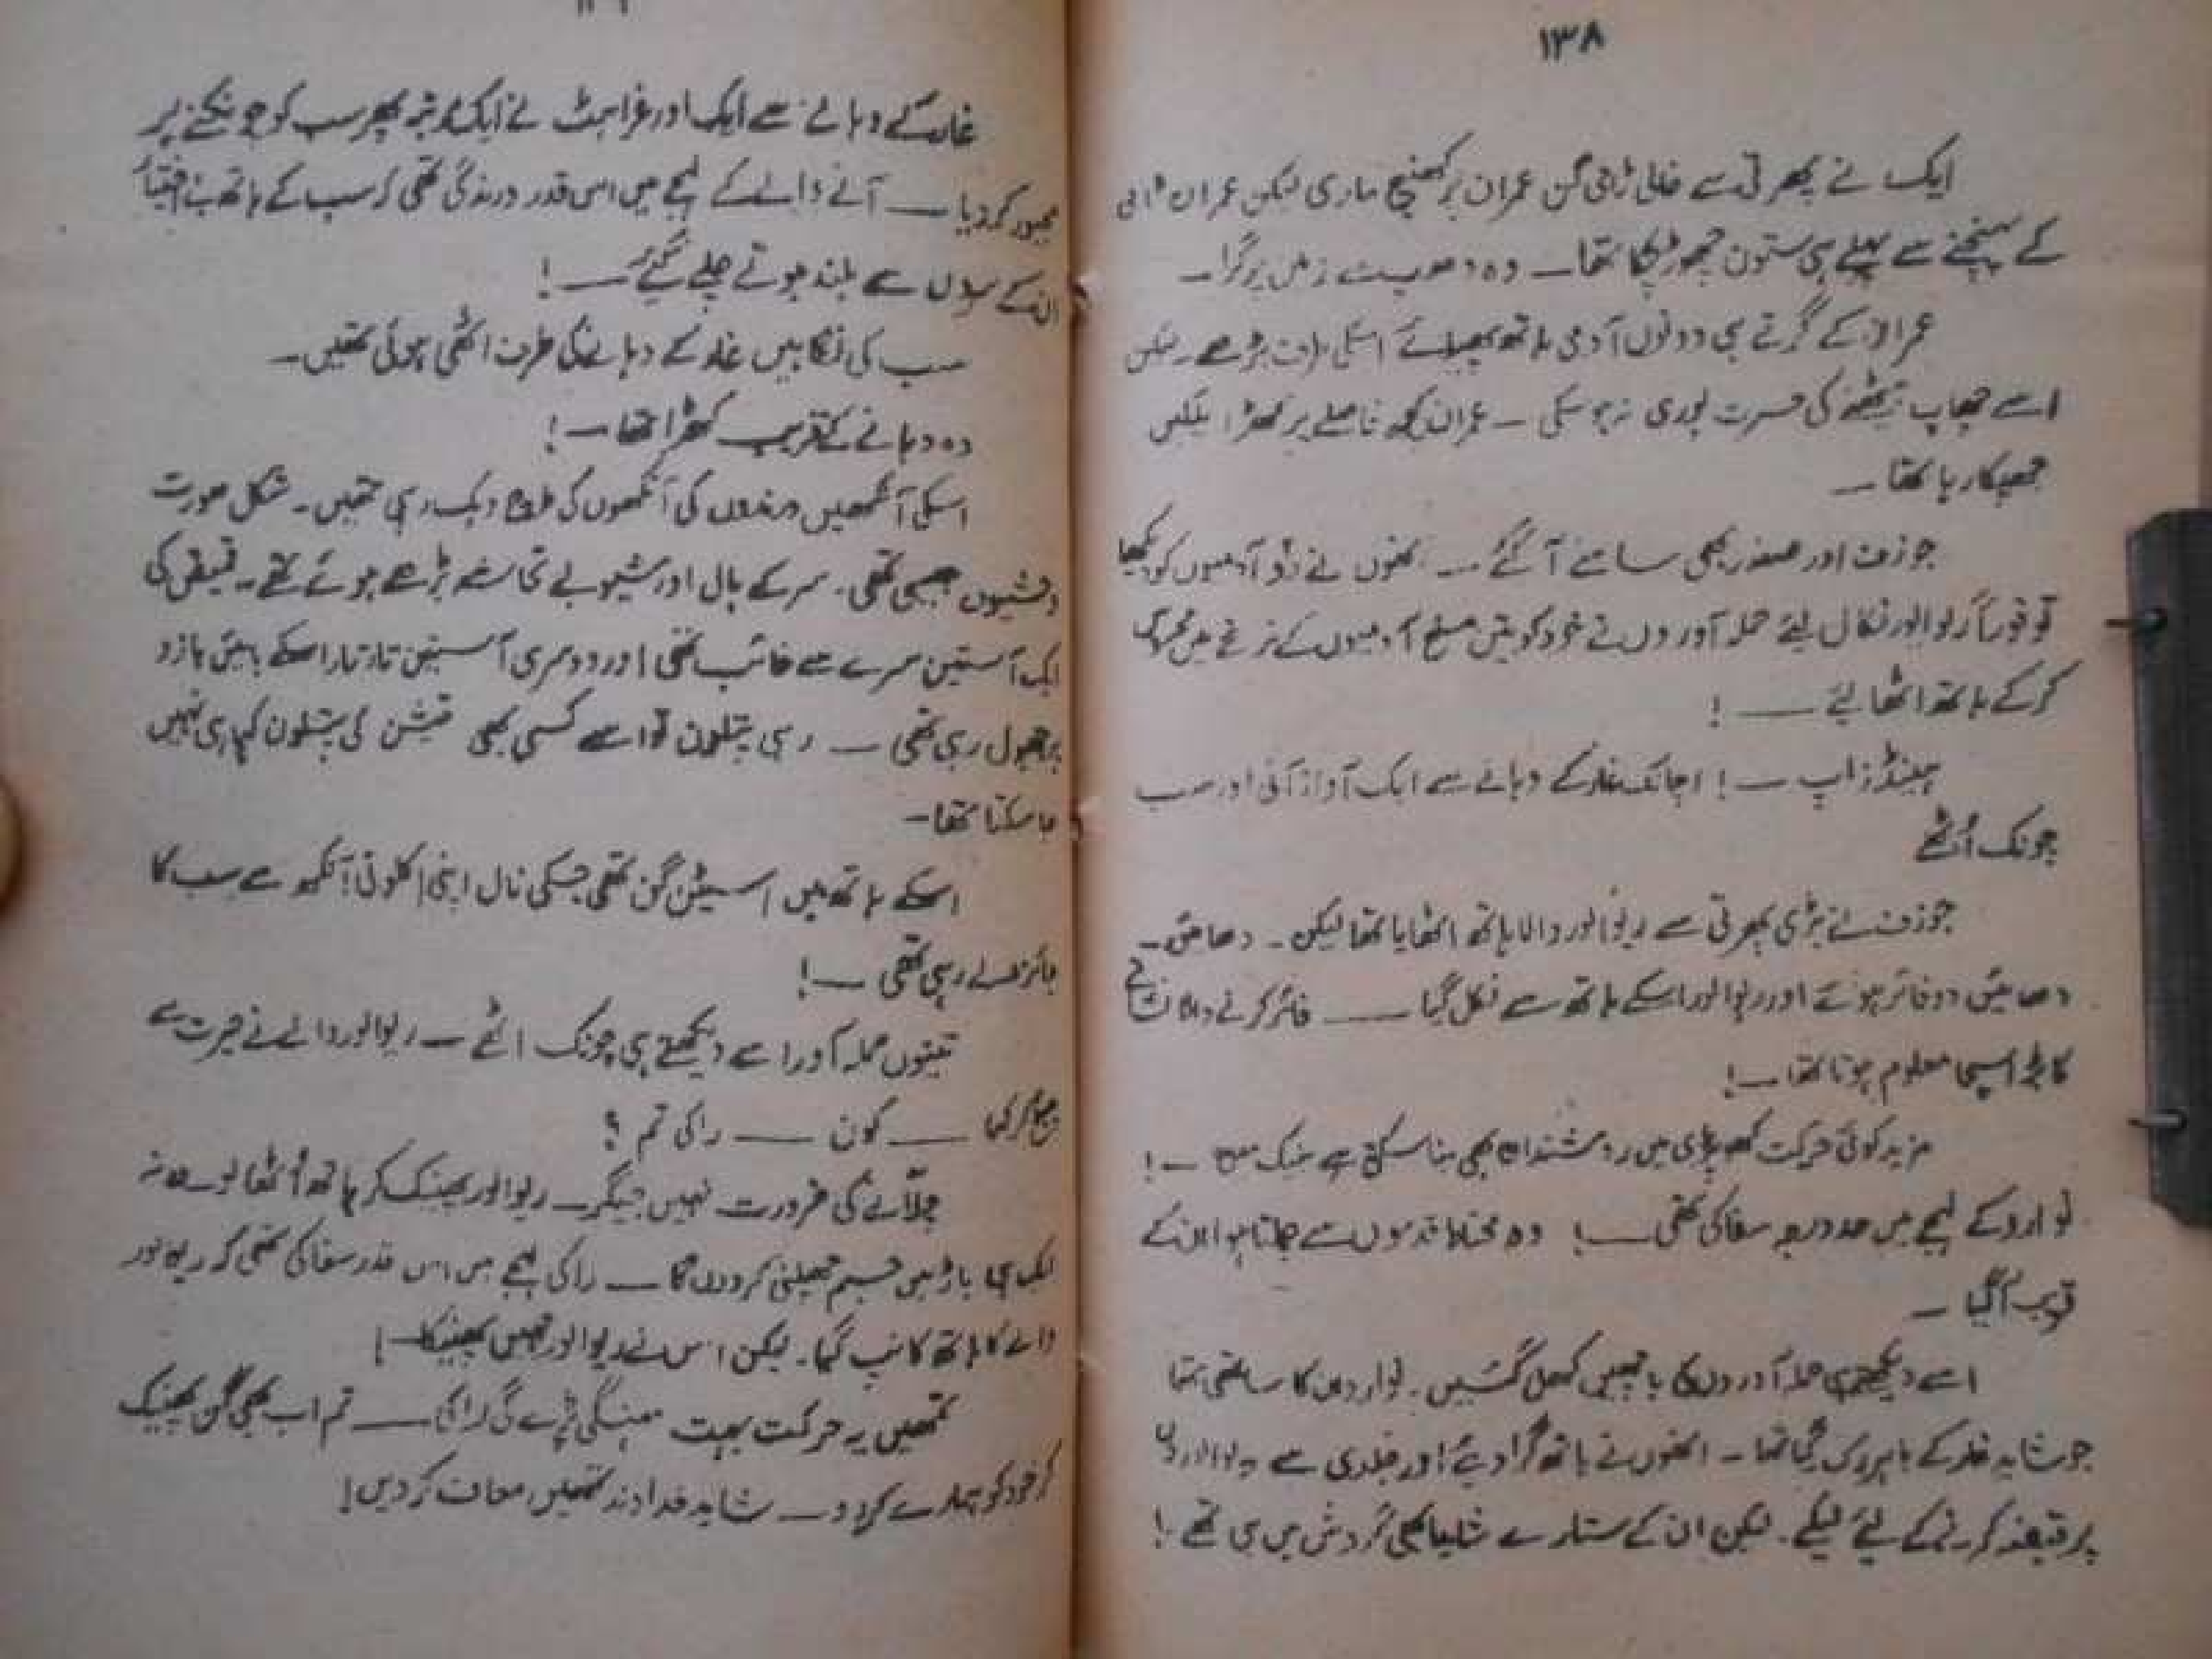 ۱۳۸
ایک نے پھرتی سے خالی ٹامی گن عمران پر کھینچ ماری لیکن عمران ٹامی
کے پہنچنے سے پہلے ہی ستون چھوڑ چکا تھا ــ وہ دھپ سے زمین پر گرا ــ
عمران کے گرتے ہی دونوں آدمی ہاتھ پھیلائے اسکی طرف بڑھے ۔ لیکن
اسے چھاپ بیٹھنے کی حسرت پوری نہ ہو سکی ــ عمران کچھ فاصلے پر کھڑا پلکیں
جھپکا رہا تھا ــ
جوزف اور صفدر بھی سامنے آ گئے ــ انھوں نے دو آدمیوں کو دیکھا
تو فوراً ریوالور نکال لیئے حملہ آوروں نے خود کو تین مسلح آدمیوں کے نرغے میں محسوس
کر کے ہاتھ اٹھا لیے ــــ !
ہینڈز اپ ــ ! اچانک غار کے دہانے سے ایک آواز آئی اور سب
چونک اُٹھے
جوزف نے بڑی پھرتی سے ریوالور والا ہاتھ اٹھایا تھا لیکن ۔ دھائیں ۔
دھائیں دو فائر ہوئے اور ریوالور اسکے ہاتھ سے نکل گیا ــــ فائر کرنے والا نشانے
کا بڑا سچا معلوم ہوتا تھا ــ !
مزید کوئی حرکت کھوپڑی میں روشندان بھی بنا سکتی ہے ــ !
نووارد کے لہجے میں حد درجہ سفاکی تھی ــ ! وہ محتاط قدموں سے چلتا ہوا ان کے
قریب آ گیا ــ
اسے دیکھتے ہی حملہ آوروں کی باچھیں کھل گئیں ۔ نووارد ان کا ساتھی تھا
جو شاید غار کے باہر رک گیا تھا ــ انھوں نے ہاتھ گرا دیئے اور جلدی سے ریوالوروں
پر قبضہ کرنے کے لیئے لپکے ۔ لیکن ان کے ستارے شاید ابھی گردش میں ہی تھے !
غار کے دہانے سے ایک اور غراہٹ نے ایک مرتبہ پھر سب کو چونکنے پر
مجبور کر دیا ــــ آنے والے کے لہجے میں اس قدر درندگی تھی کہ سب کے ہاتھ بے اختیار
ان کے سروں سے بلند ہوتے چلے گئے ــــ !
سب کی نگاہیں غار کے دہانے کی طرف اٹھی ہوئی تھیں ــ
وہ دہانے کے قریب کھڑا تھا ــ !
اسکی آنکھیں درندوں کی آنکھوں کی طرح دہک رہی تھیں ۔ شکل صورت
وحشیوں جیسی تھی ۔ سر کے بال اور شیو بے تحاشہ بڑھے ہوئے تھے ۔ قمیض کی
ایک آستین سرے سے غائب تھی اور دوسری آستین تار تار اسکے بائیں بازو
پر جھول رہی تھی ــ رہی پتلون تو اسے کسی بھی فیشن کی پتلون کہا ہی نہیں
جا سکتا تھا ــ
اسکے ہاتھ میں اسٹین گن تھی جسکی نال اپنی اکلوتی آنکھ سے سب کا
جائزہ لے رہی تھی ــ !
تینوں حملہ آور اسے دیکھتے ہی چونک اٹھے ــ ریوالور والے نے حیرت سے
چیخ کر کہا ــــ کون ــــ راکی تم ؟
چلاّنے کی ضرورت نہیں جیگر ــ ریوالور پھینک کر ہاتھ اُٹھا لو ــ ورنہ
ایک ہی باڑ میں جسم چھلنی کر دوں گا ــ راکی لہجے میں اس قدر سفاکی تھی کہ ریوالور
والے کا ہاتھ کانپ گیا ۔ لیکن اس نے ریوالور نہیں پھینکا ــ !
تمھیں یہ حرکت بہت مہنگی پڑے گی راکی ــــ تم اب بھی گن پھینک
کر خود کو ہمارے کر دو ــ شاید خداوند تمھیں معاف کر دیں !